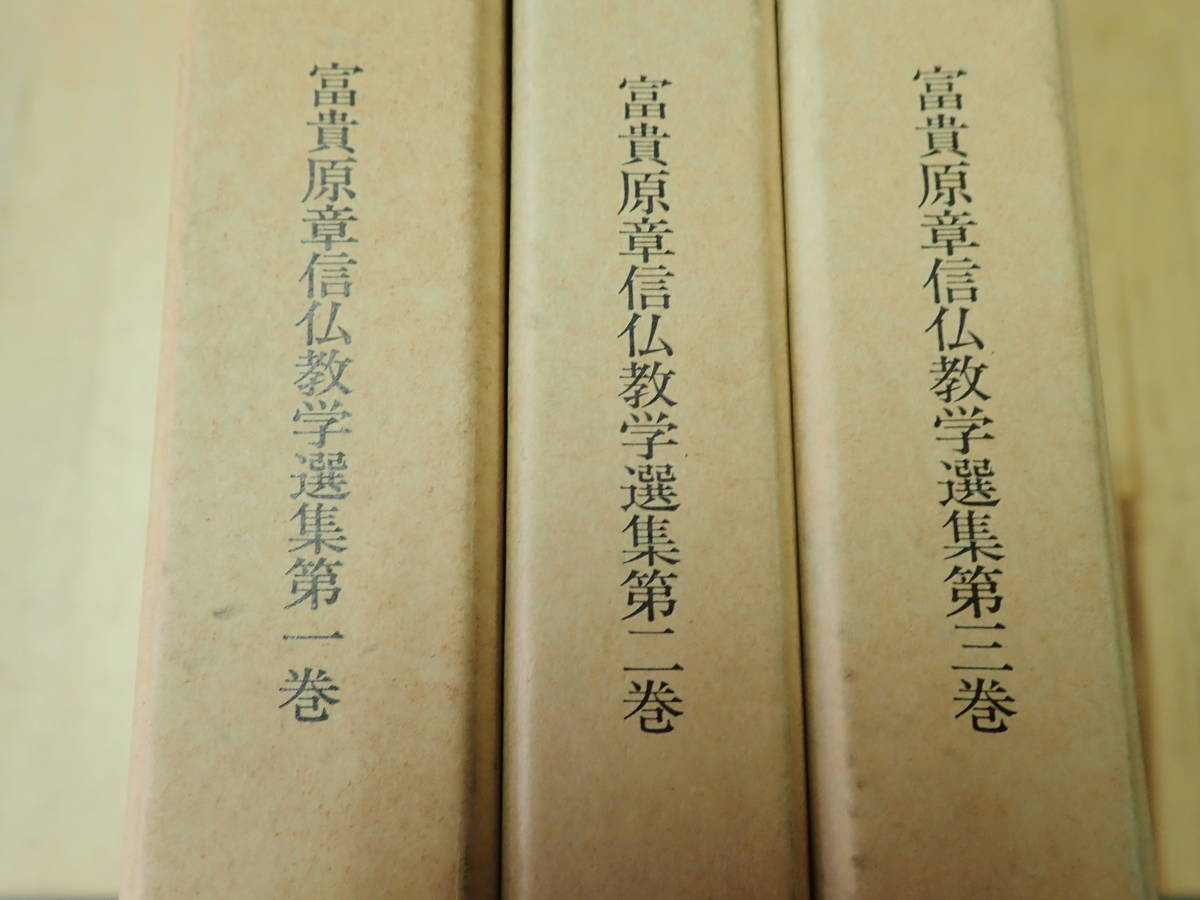 富貴原章信仏教学選集第一巻
富貴原章信仏教学選集第二巻
富貴原章信仏教学選集第三巻